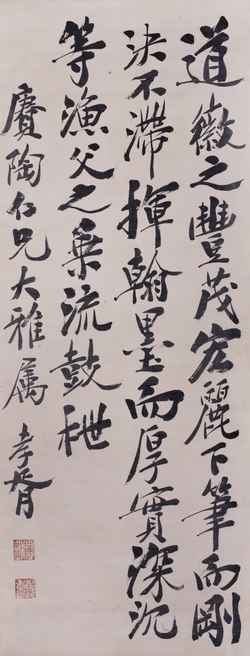 道徽之豐茂宏麗下筆而剛
決不滯揮翰墨而厚實深沉
等漁父之乘流鼓枻
賡陶仁兄大雅属 孝胥